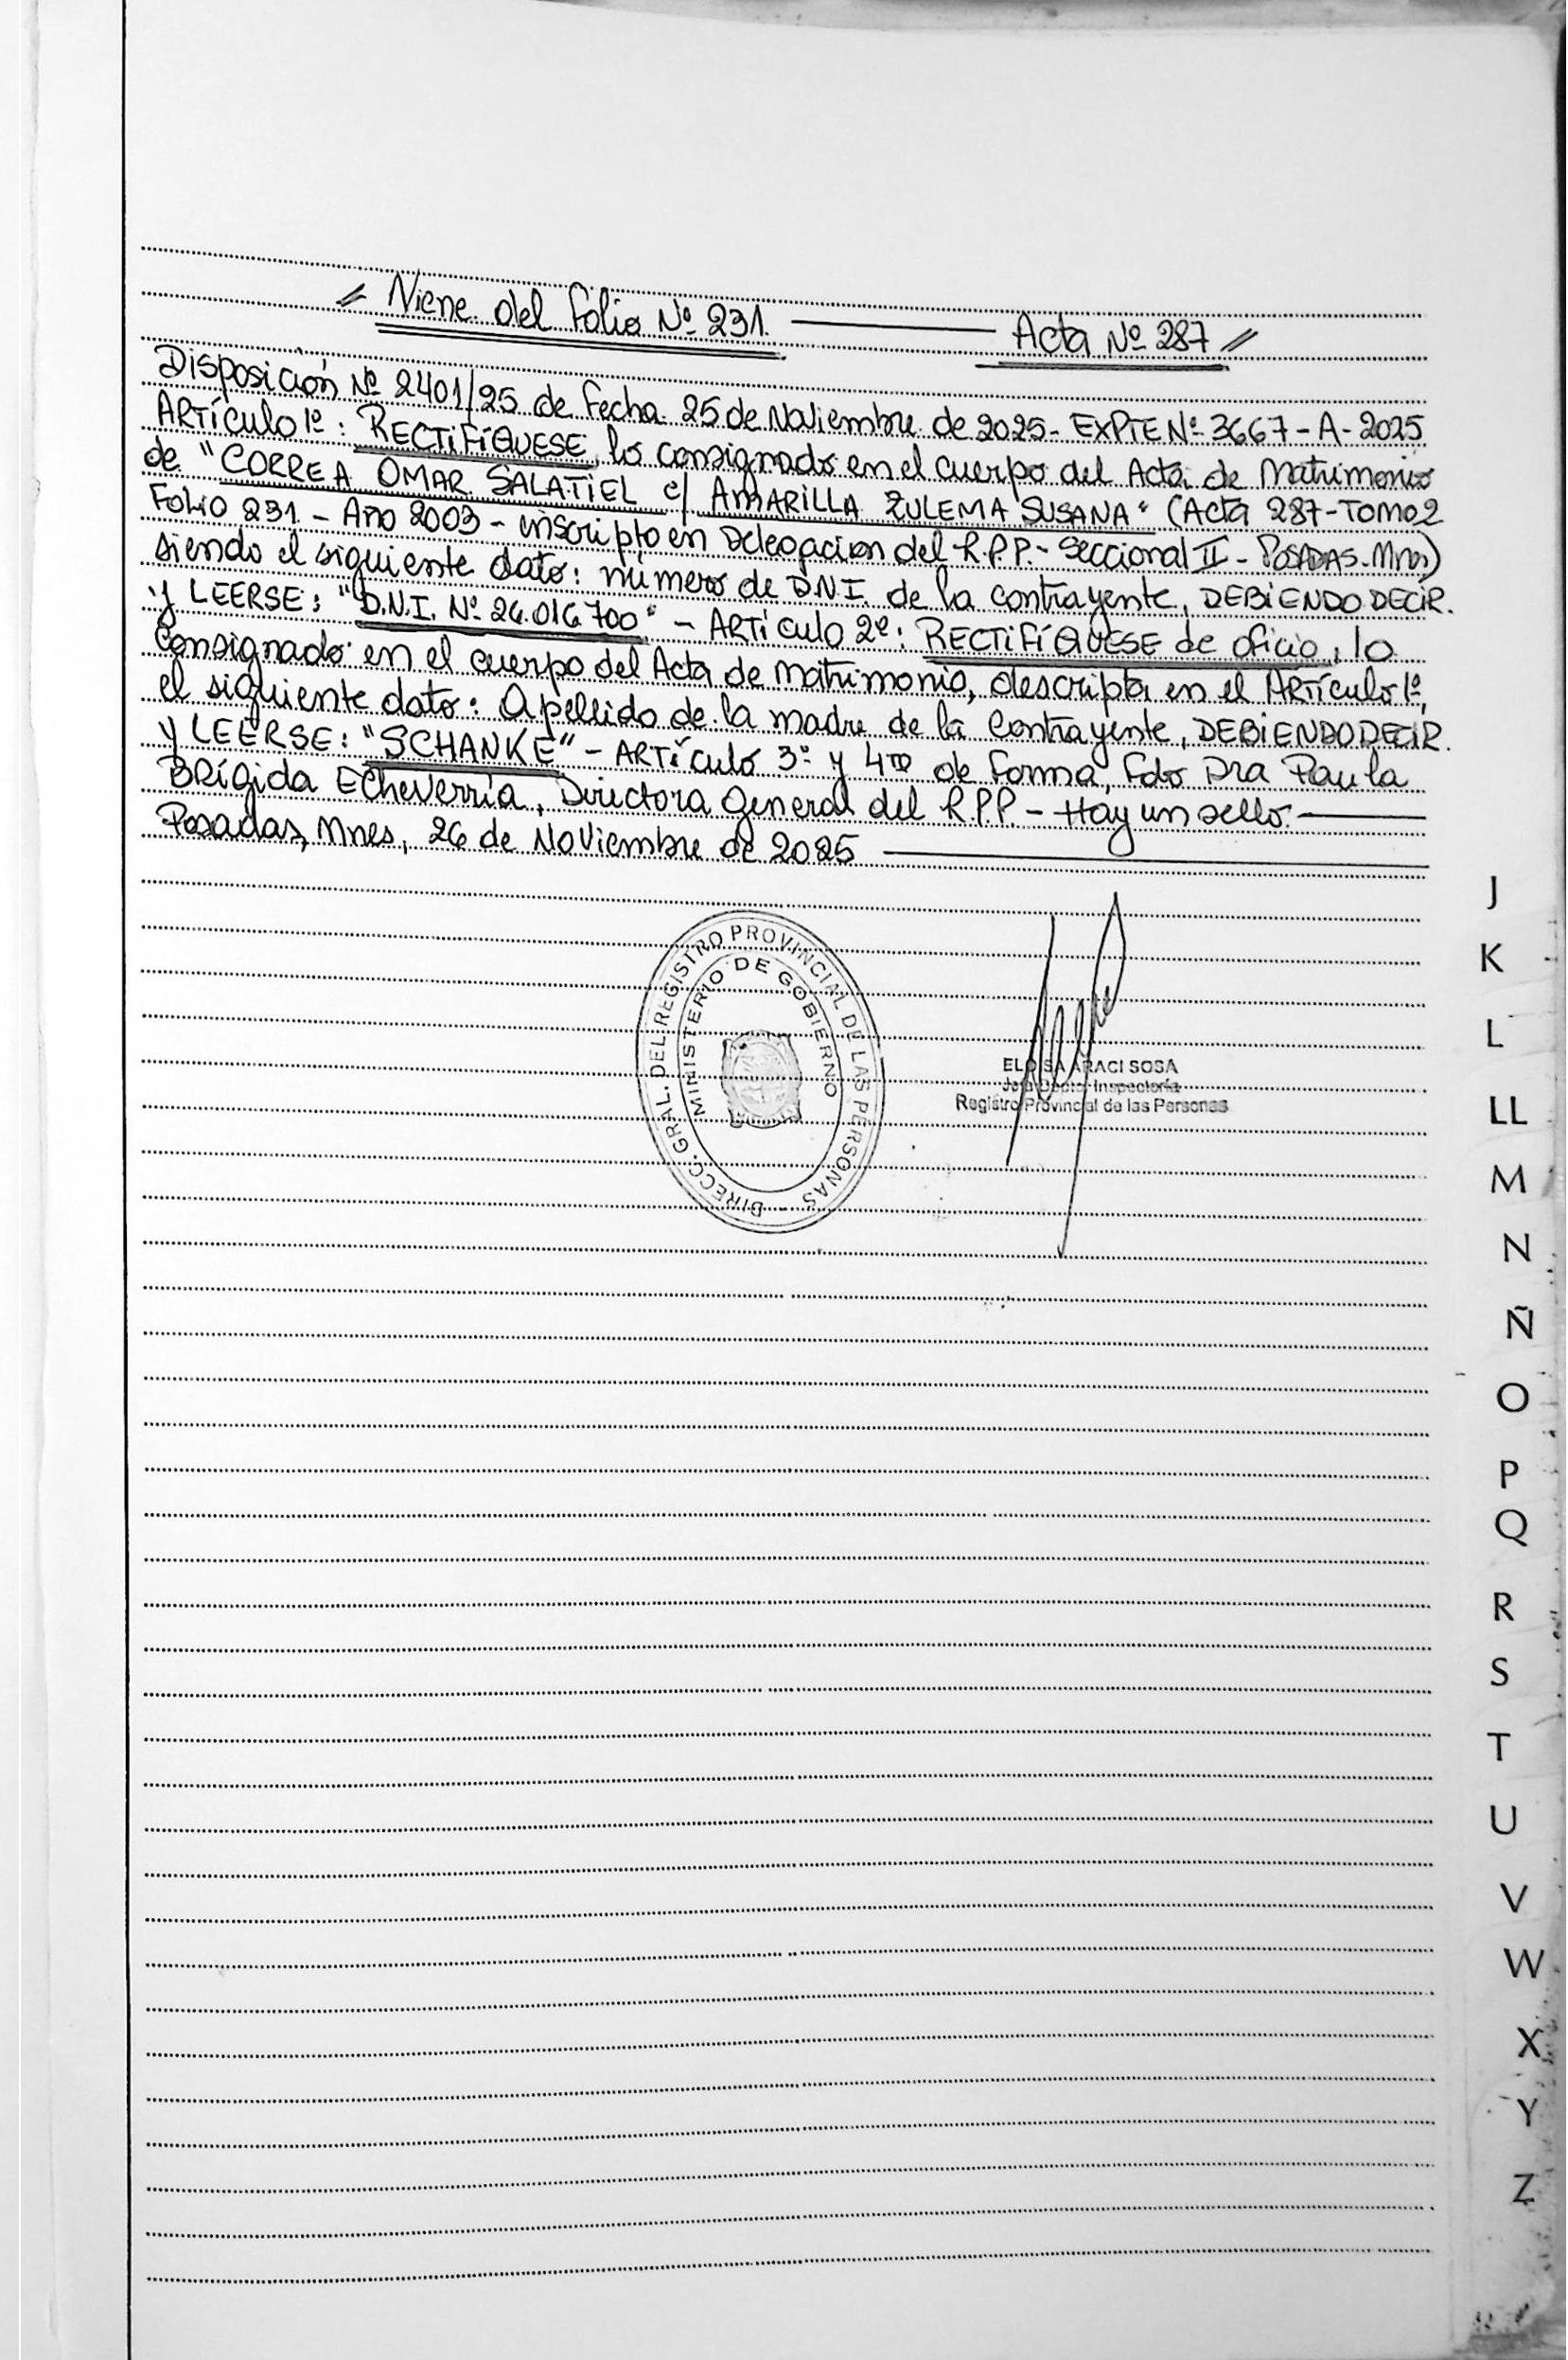 // Viene del folio Nº 231. ——— Acta Nº 287 //
Disposición Nº 2401/25 de fecha 25 de Noviembre de 2025- EXPTE Nº 3667-A-2025
ARTÍCULO 1º: RECTIFÍQUESE, lo consignado en el cuerpo del Acta de Matrimonio
de "CORREA OMAR SALATIEL c/ AMARILLA ZULEMA SUSANA" (Acta 287-TOMO 2
Folio 231 - Año 2003 - inscripto en Delegacion del R.P.P.- Seccional II - POSADAS-Mnes)
siendo el siguiente dato: número de D.N.I. de la contrayente, DEBIENDO DECIR.
Y LEERSE: "D.N.I. Nº 26.016.700" - ARTÍCULO 2º: RECTIFÍQUESE de oficio, lo
Consignado en el cuerpo del Acta de matrimonio, descripta en el ARTÍCULO 1º,
el siguiente dato: Apellido de la madre de la Contrayente, DEBIENDO DECIR.
Y LEERSE: "SCHANKE" - ARTÍCULO 3º y 4to de forma, fdo Dra Paula
BRÍGIDA ECHEVERRÍA, Directora General del R.P.P. - Hay un sello. ———
Posadas, Mnes, 26 de Noviembre de 2025 ———
DIRECC. GRAL. DEL REGISTRO PROVINCIAL DE LAS PERSONAS -
MINISTERIO DE GOBIERNO
ELOISA ARACI SOSA
Jefa Dpto. Inspectoría
Registro Provincial de las Personas
J
K
L
LL
M
N
Ñ
O
P
Q
R
S
T
U
V
W
X
Y
Z